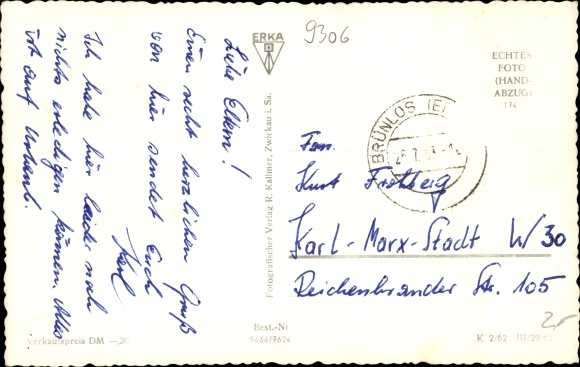 Liebe Eltern!
Einen recht herzlichen Gruß
von hier sendet Euch
Karl
Ich habe hier leider noch
nichts erledigen können. Alles
ist auf Urlaub.
Verkaufspreis DM —,20
ERKA
Fotografischer Verlag R. Kallmer, Zwickau i. Sa.
Best.-Nr
9466/7624
9306
ECHTES
FOTO
(HAND-
ABZUG)
174
BRÜNLOS (ER
Fam.
Kurt Frohberg
Karl-Marx-Stadt W 30
Reichenbrander Str. 105
2,-
K 2/62 III/29/65